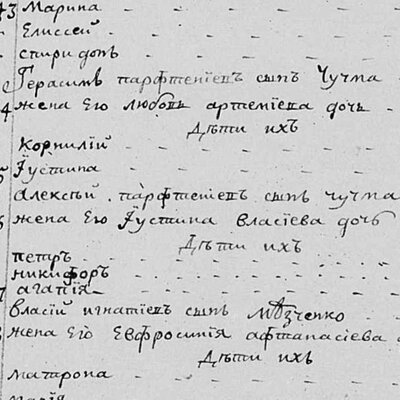 43 Марина
Елиссей
спиридонъ
Герасимъ парфтенїевъ сынъ Чучма
4 жена Его любовь артемїева дочь
Дѣти ихъ
Корнилїй
Їустина
алексѣй парфтенїевъ сынъ чучма
жена Его Їустина власїева дочь
Дѣти ихъ
петръ
никифоръ
агапїя
власїй игнатїевъ сынъ
жена Его Евфросинїя афтанасїева
Дѣти ихъ
матрона